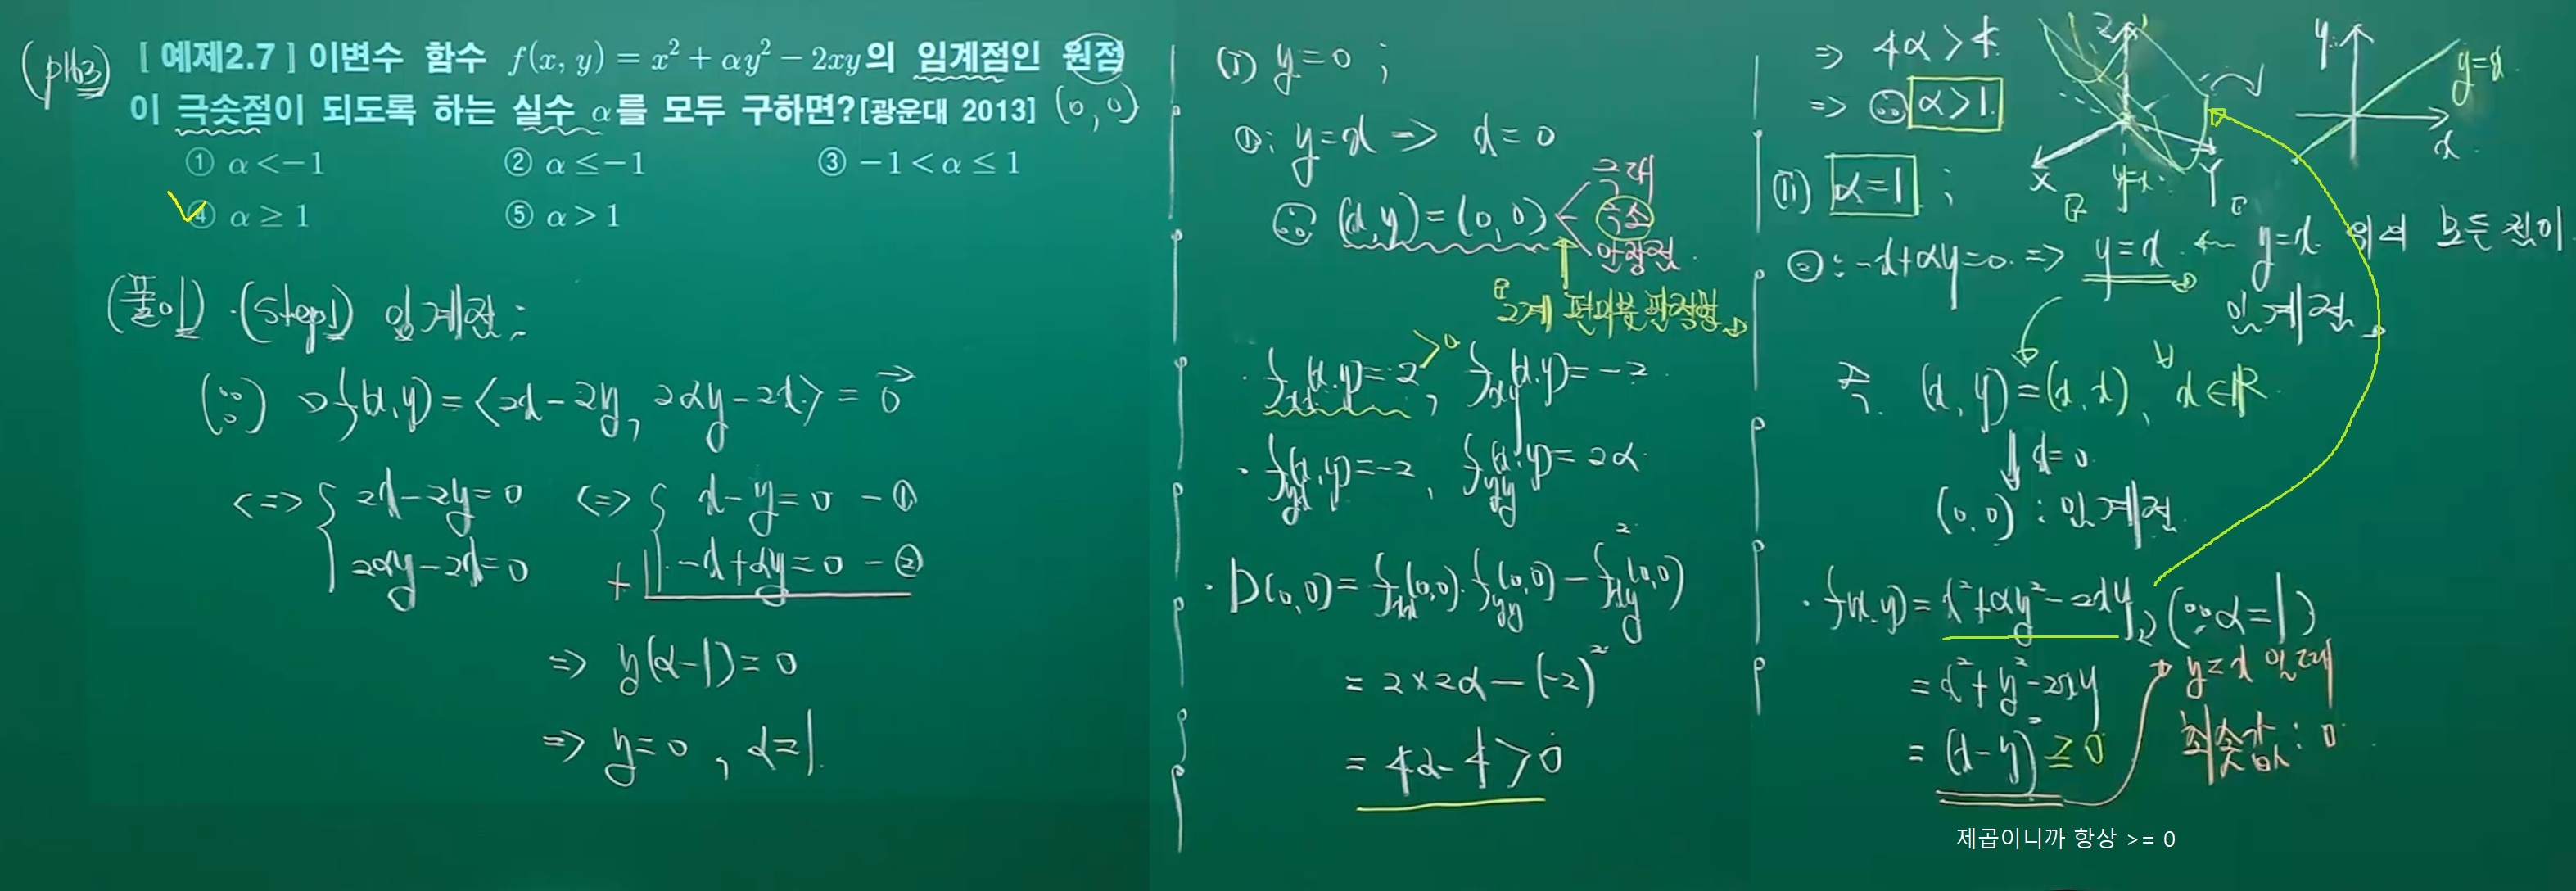 (p163) [ 예제2.7 ] 이변수 함수 f(x, y) = x² + αy² − 2xy의 임계점인 원점
이 극솟점이 되도록 하는 실수 α를 모두 구하면?[광운대 2013] (0, 0)
① α < −1 ② α ≤ −1 ③ −1 < α ≤ 1
④ α ≥ 1 ⑤ α > 1
(풀이) ·(step1) 임계점 ;
(∵) ▽f(x,y) = <2x−2y, 2αy−2x> = 0⃗
<=> { 2x−2y=0 <=> { x−y=0 −①
2αy−2x=0 + −x+αy=0 −②
=> y(α−1)=0
=> y=0 , α=1.
(i) y=0 ;
①; y=x -> x=0
∴ (x,y)=(0,0)
극대
극소
안장점.
2계 편미분 판정법
· fxx(x,y)=2 >0, fxy(x,y)=−2.
· fyx(x,y)=−2, fyy(x,y)=2α.
· D(0,0)=fxx(0,0)·fyy(0,0)−fxy²(0,0)
= 2×2α−(−2)²
= 4α−4>0
=> 4α>4
=> ∴ α>1.
Z
X
Y
y=x.
y
x
y=x.
(ii) α=1 ;
②; −x+αy=0. => y=x. <- y=x. 위의 모든 점이
임계점
즉. (x,y)=(x,x), ∀x∈ℝ.
↓ x=0.
(0,0) : 임계점.
· f(x,y)=x²+αy²−2xy, (∵α=1)
= x²+y²−2xy
= (x−y)² ≥0
y=x 일 때
최솟값 : 0.
제곱이니까 항상 >= 0